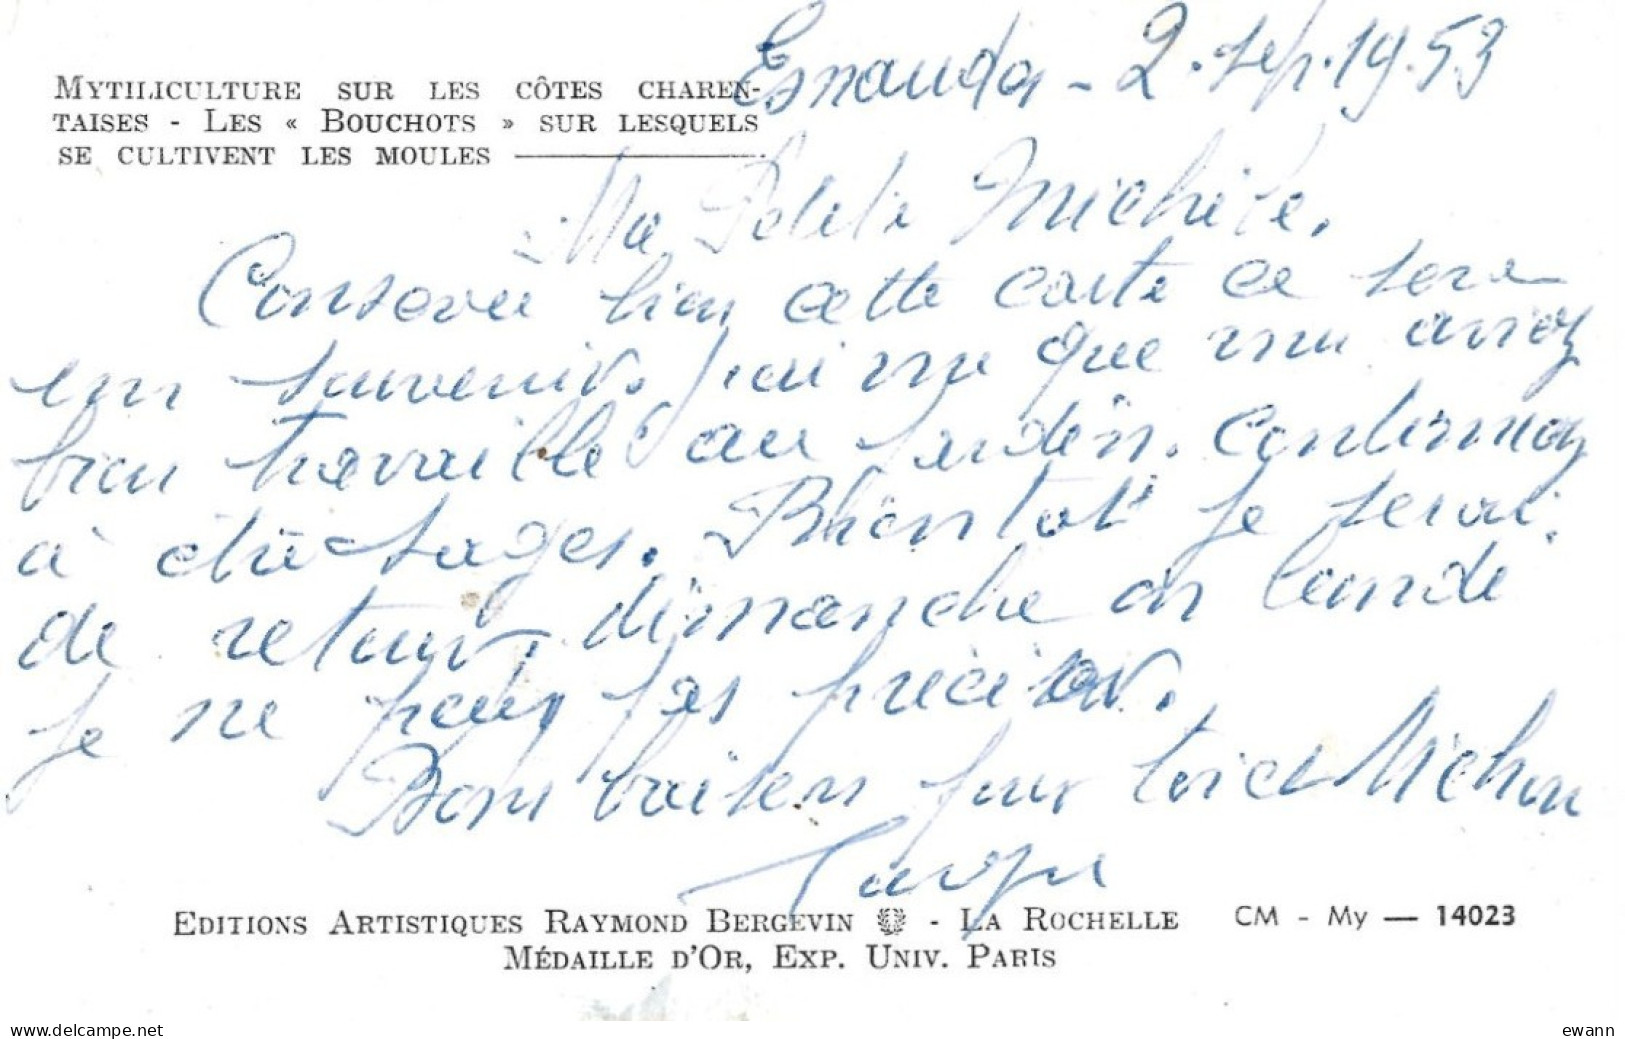 Esnandes - 2. sep. 1953
MYTILICULTURE SUR LES CÔTES CHAREN-
TAISES - LES « BOUCHOTS » SUR LESQUELS
SE CULTIVENT LES MOULES
Ma Petite Michèle.
Conserve bien cette carte ce sera
un souvenir. J'ai vu que vous aviez
bien travaillé au jardin. Continuez
à être sages. Bientôt je serai
de retour, dimanche ou lundi
je ne peux pas préciser.
Bons baisers pour toi et Michou
EDITIONS ARTISTIQUES RAYMOND BERGEVIN - LA ROCHELLE CM - My — 14023
MÉDAILLE D'OR, EXP. UNIV. PARIS
www.delcampe.net
ewann